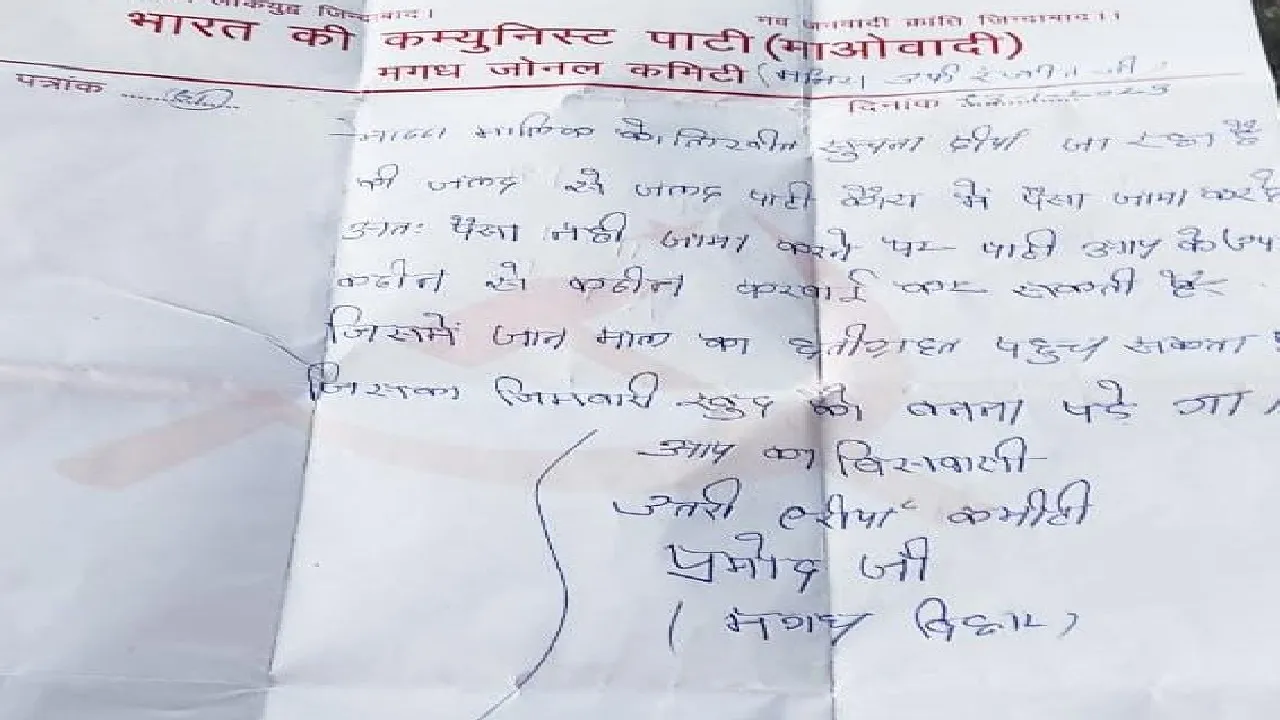 जिन्दाबाद।
नव जनवादी क्रांति जिन्दाबाद।।
भारत की कम्युनिस्ट पार्टी (माओवादी)
मगध जोनल कमिटी
पत्रांक
दिनांक
मालिक को सुचना दीया जा रहा है
की जलद से जलद पार्टी कोस में पैसा जामा करे
अतः पैसा नही जामा करने पर पार्टी आप के उप
कठीन से कठीन करवाई कर सकती हैं
जिसमें जान माल का पहुच सकता
जिसका जिमवारी खुद को बनना पड़े गा।
आप का विसवासी
उतरी एरीया कमीटी
प्रमोद जी
(मगध विहार)